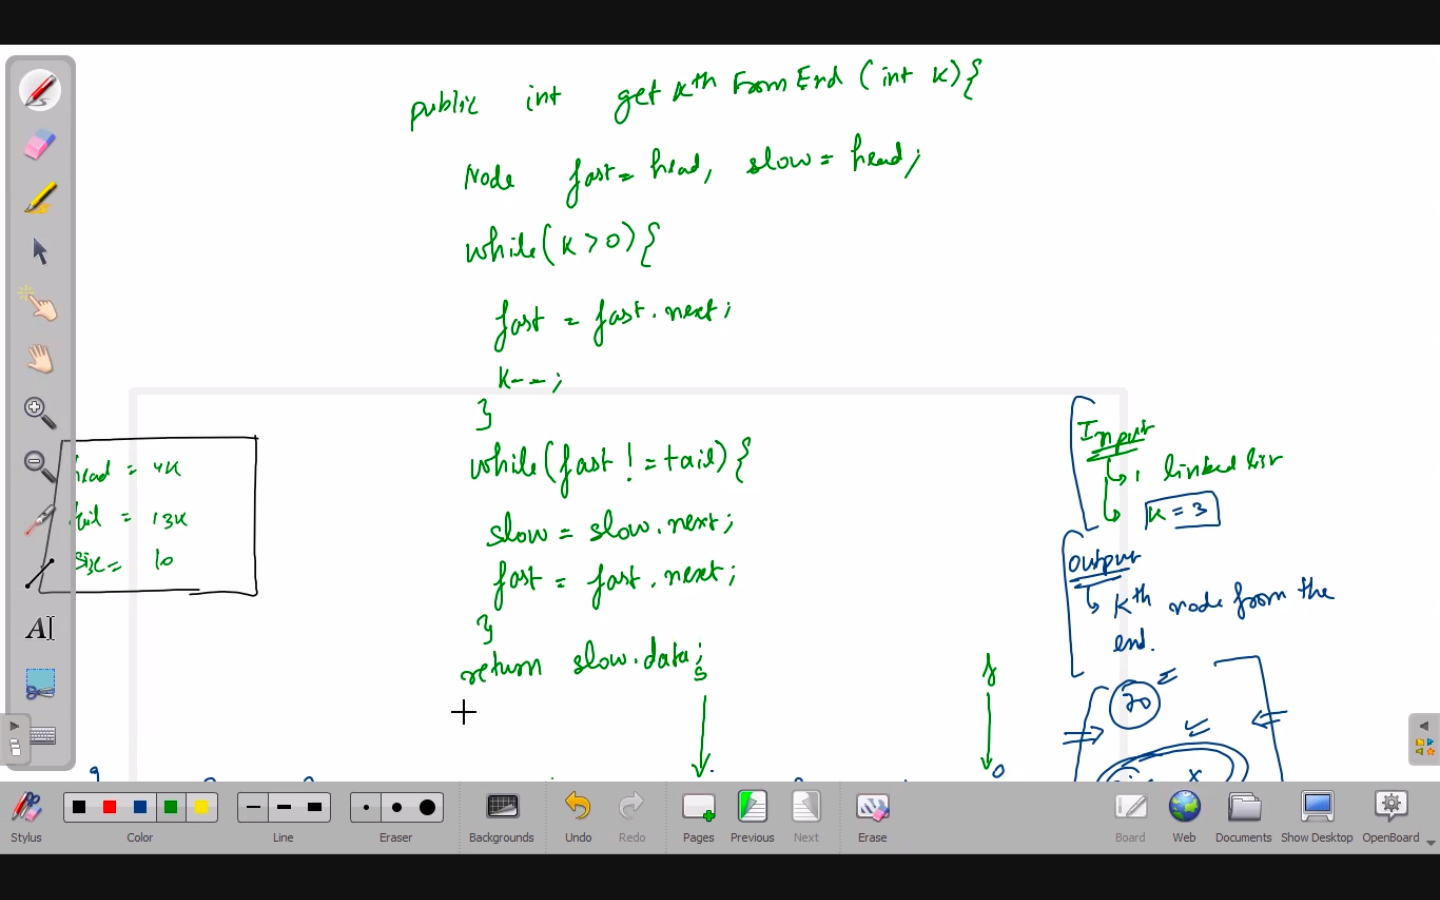 public int get Kth From End (int K){
Node fast = head, slow = head;
while(K > 0){
fast = fast.next;
K--;
}
while(fast != tail){
slow = slow.next;
fast = fast.next;
}
return slow.data;
head = 4K
tail = 13K
size = 10
Input
1 linked list
K = 3
Output
Kth node from the
end.
s
f
70
9
0
x
AI
Stylus
Color
Line
Eraser
Backgrounds
Undo
Redo
Pages
Previous
Next
Erase
Board
Web
Documents
Show Desktop
OpenBoard